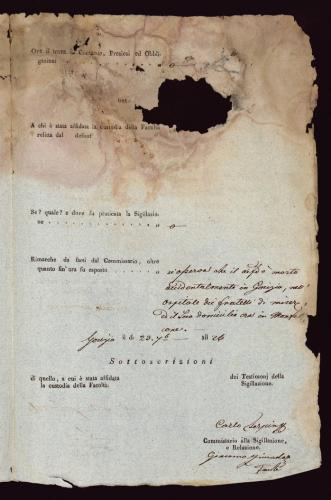 Ove il Contanio, Preziosi ed Obbli-
gazioni
A chi è stata affidata la custodia della Facoltà
relitta dal defunt
Se? quale? e dove fu praticata la Sigillazio-
ne o
Rimarche da farsi dal Commissario, oltre
quanto fin' ora fu esposto si osserva che il morto
accidentalmente in Gorizia, nell'
Ospitale dei fratelli di miser.
ed il suo domicilio era in Monfal
cone.
Gorizia li 23. 7bre 1826
Sottoscrizioni
di quello, a cui è stata affidata
la custodia della Facoltà.
dei Testimonj della
Sigillazione.
Carlo
Commissario alla Sigillazione,
e Relazione.
Giacomo